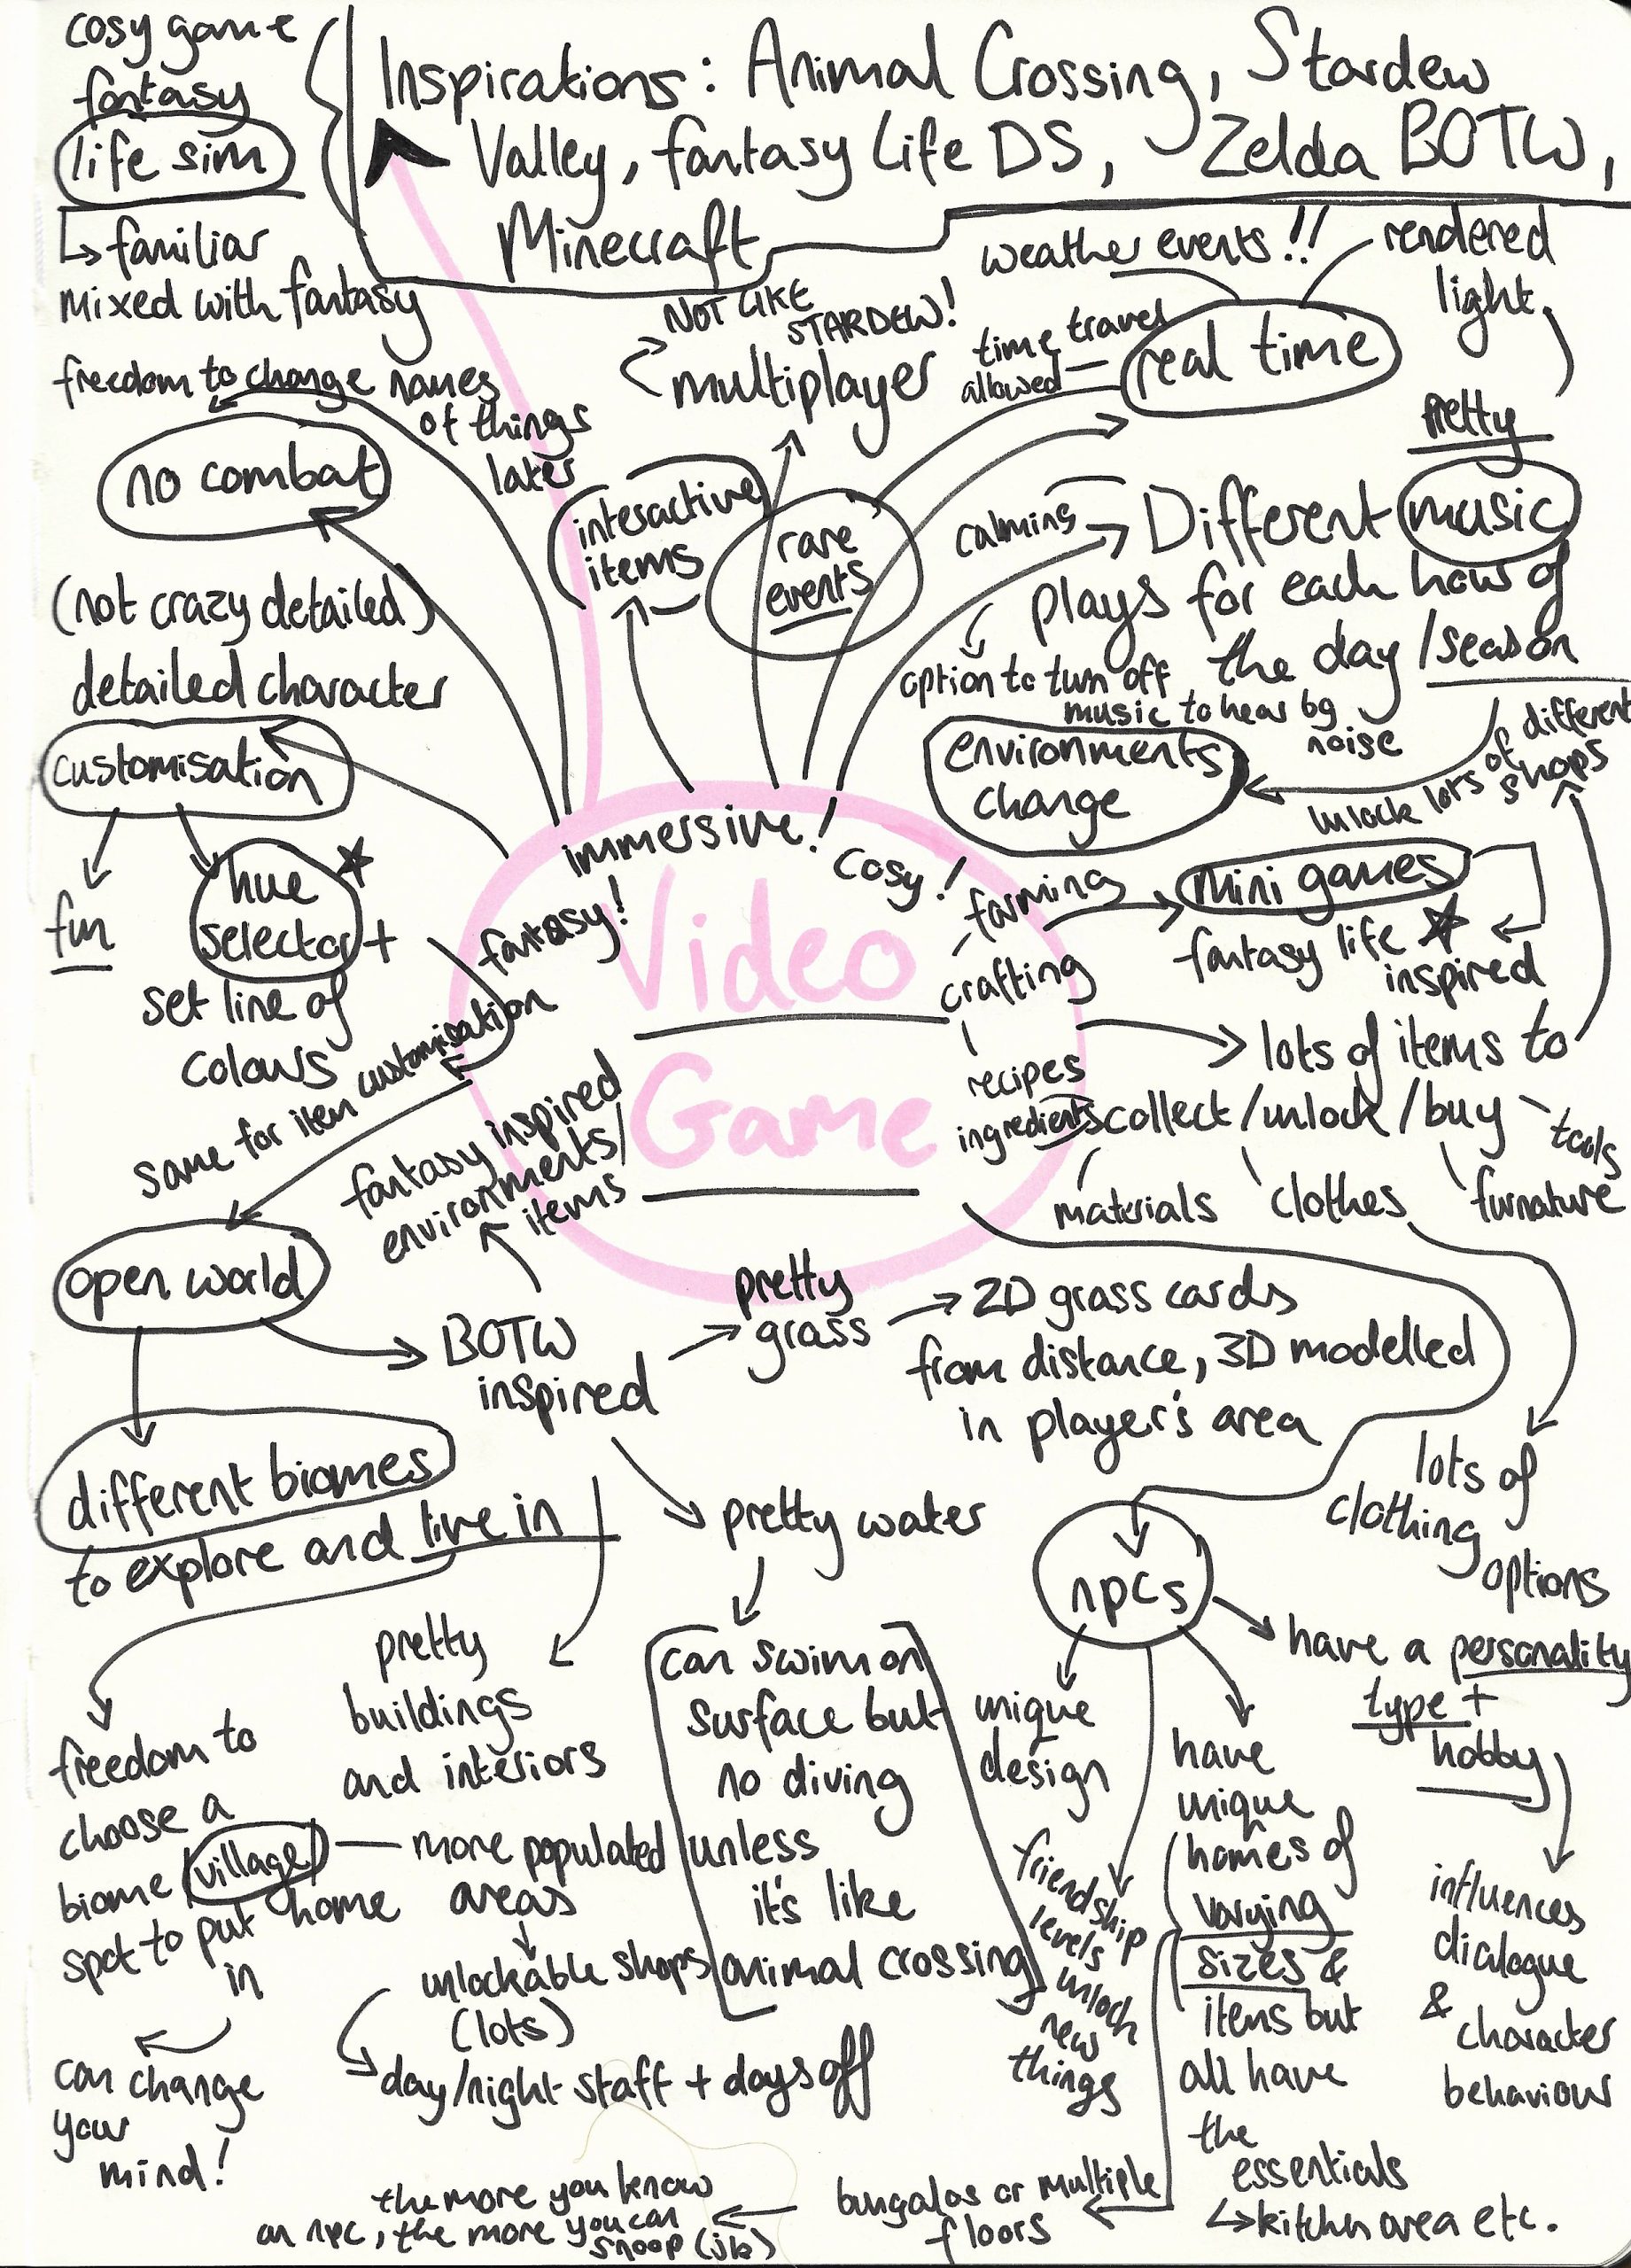 cosy game
fantasy
life sim
familiar
mixed with fantasy
Inspirations: Animal Crossing, Stardew
Valley, fantasy Life DS, Zelda BOTW,
Minecraft
freedom to change names
of things
later
no combat
NOT LIKE
STARDEW!
multiplayer
weather events!!
rendered
light
time travel
allowed
real time
interactive
items
rare
events
pretty
calming
Different music
plays for each hour of
the day / season
option to turn off
music to hear bg
noise
environments
change
unlock lots of different
shops
(not crazy detailed)
detailed character
customisation
fun
hue
selector +
set line of
colours
same for item customisation
immersive!
cosy!
fantasy!
Video
Game
farming
crafting
recipes
ingredients
mini games
fantasy life
inspired
lots of items to
collect/unlock/buy
tools
materials
clothes
furnature
fantasy inspired
environments/
items
open world
BOTW
inspired
pretty
grass
2D grass cards
from distance, 3D modelled
in player's area
lots of
clothing
options
different biomes
to explore and live in
pretty water
npcs
freedom to
choose a
biome village
spot to put home
in
can change
your
mind!
pretty
buildings
and interiors
more populated
areas
unlockable shops
(lots)
day/night staff + days off
can swim on
surface but
no diving
unless
it's like
animal crossing
unique
design
friendship
levels
unlock
new
things
have
unique
homes of
varying
sizes &
items but
all have
the
essentials
kitchen area etc.
have a personality
type +
hobby
influences
dialogue
& character
behaviour
bungalos or multiple
floors
the more you know
an npc, the more you can
snoop (jk)